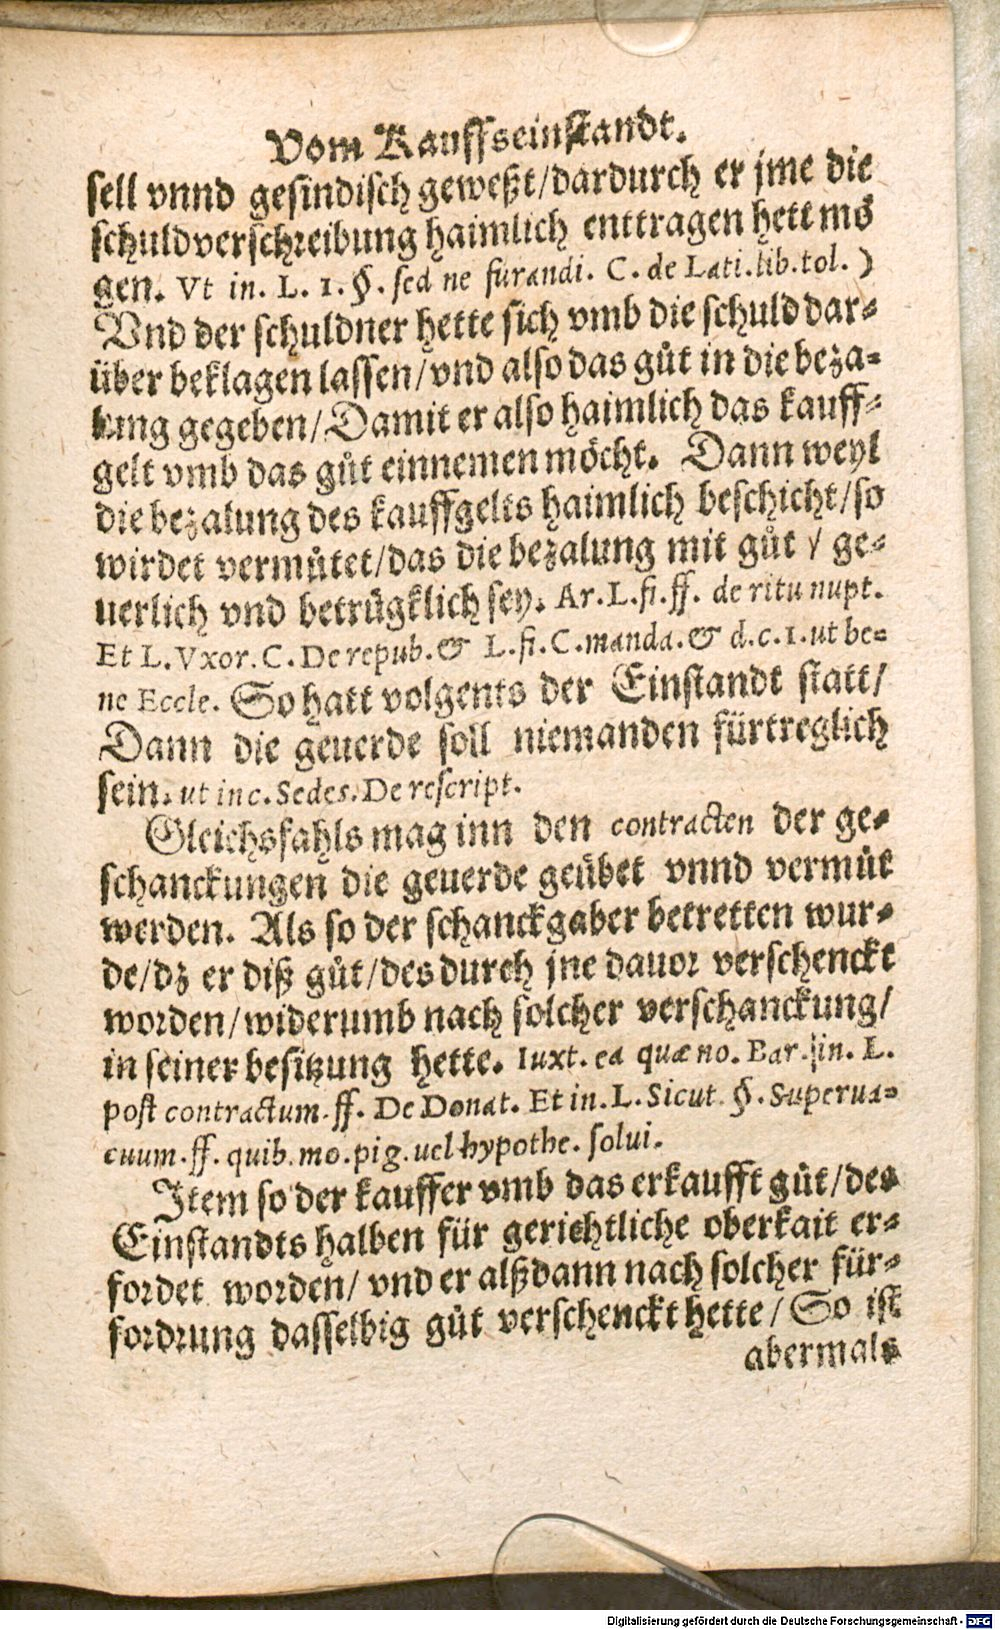 Vom Kauffseinstandt.
sell vnnd gesindisch geweßt/dardurch er jme die
schuldverschreibung haimlich enttragen hett mö
gen. Vt in. L. 1. §. sed ne furandi. C. de Lati.lib.tol. )
Vnd der schuldner hette sich vmb die schuld dar-
über beklagen lassen/vnd also das gůt in die beza-
lung gegeben/Damit er also haimlich das kauff-
gelt vmb das gůt einnemen möcht. Dann weyl
die bezalung des kauffgelts haimlich beschicht/so
wirdet vermůtet/das die bezalung mit gůt / ge-
uerlich vnd betrügklich sey. Ar.L.fi.ff. de ritu nupt.
Et L.Vxor.C.De repub.& L.fi.C.manda.& d.c.1.ut be-
ne Eccle. So hatt volgents der Einstandt statt/
Dann die geuerde soll niemanden fürtreglich
sein. ut in c.Sedes.De rescript.
Gleichsfahls mag inn den contracten der ge-
schanckungen die geuerde geübet vnnd vermůt
werden. Als so der schanckgaber betretten wur-
de/dz er diß gůt/des durch jne dauor verschenckt
worden/widerumb nach solcher verschanckung/
in seiner besitzung hette. Iuxt. ea quæ no. Bar.in. L.
post contractum.ff. De Donat. Et in.L.Sicut. §.Superua-
cuum.ff.quib.mo.pig.uel hypothe.solui.
Item so der kauffer vmb das erkaufft gůt/des
Einstandts halben für gerichtliche oberkait er-
fordet worden/ vnd er alßdann nach solcher für-
fordrung dasselbig gůt verschenckt hette/ So ist
abermals
Digitalisierung gefördert durch die Deutsche Forschungsgemeinschaft - DFG